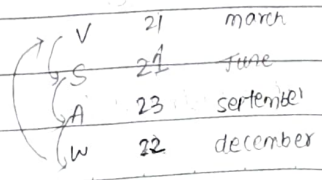 V 21 march
S 21 June
A 23 september
W 22 december